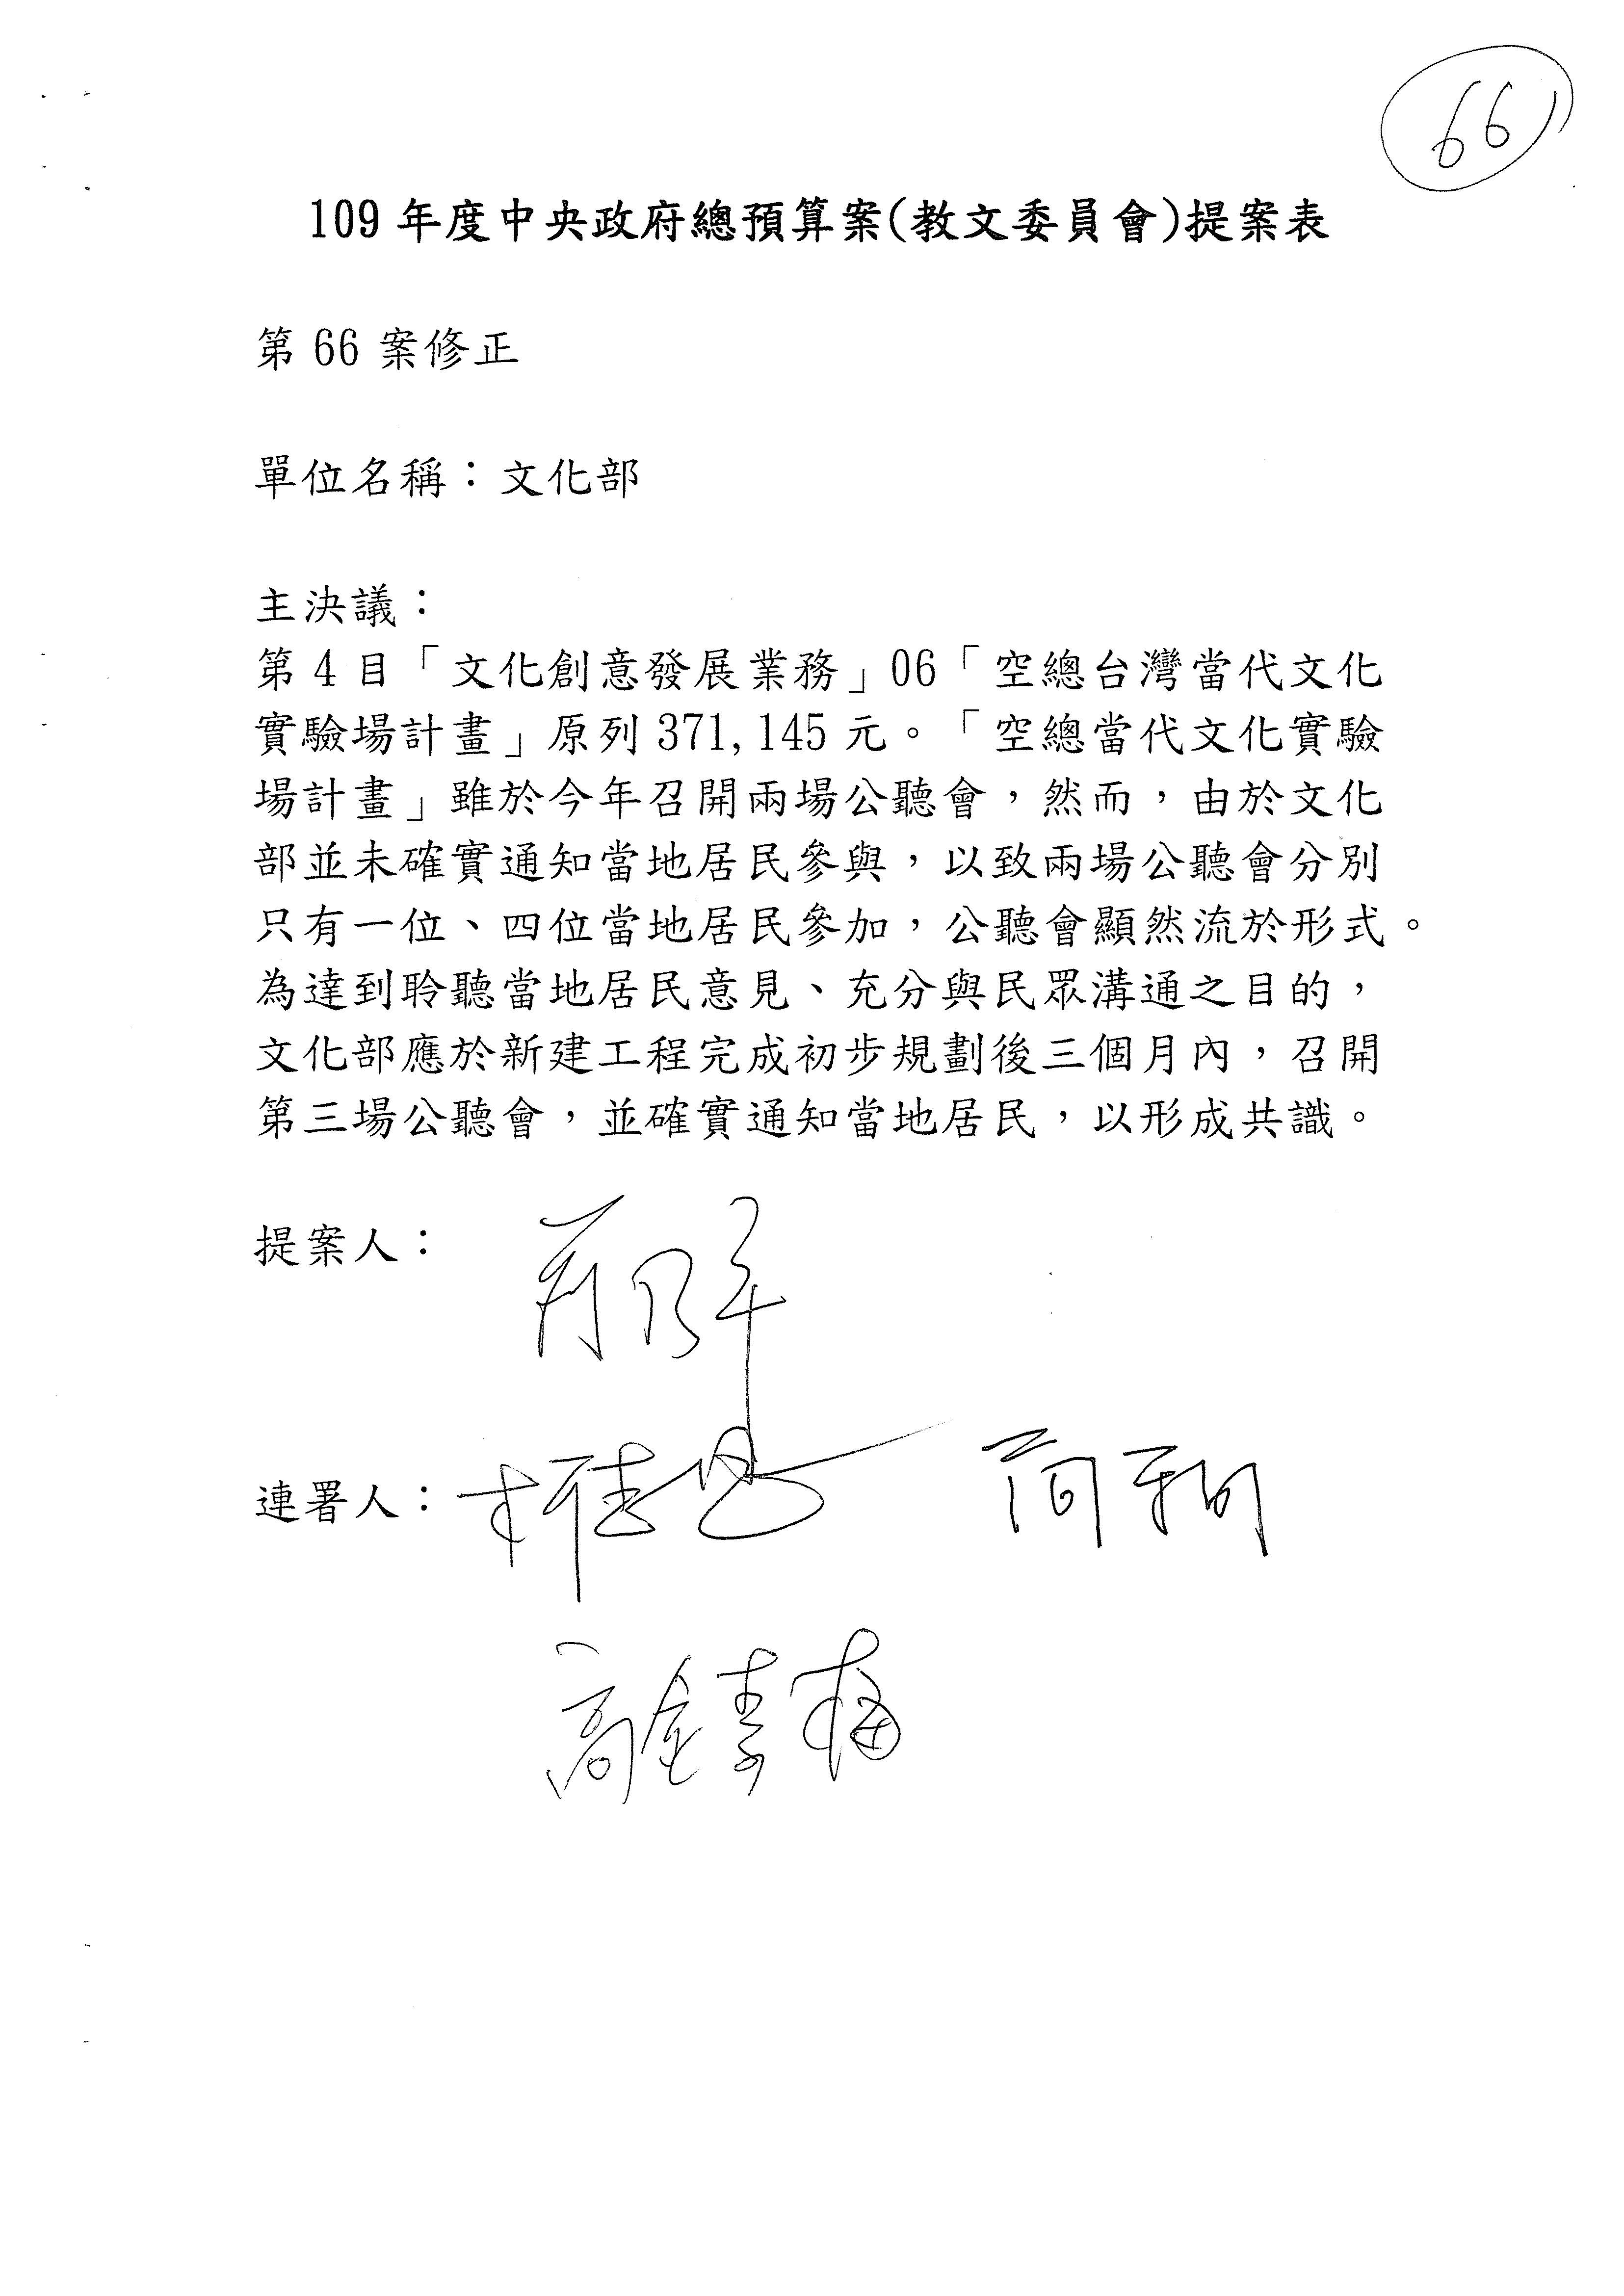 66
109 年度中央政府總預算案(教文委員會)提案表
第 66 案修正
單位名稱：文化部
主決議：
第 4 目「文化創意發展業務」06「空總台灣當代文化
實驗場計畫」原列 371,145 元。「空總當代文化實驗
場計畫」雖於今年召開兩場公聽會，然而，由於文化
部並未確實通知當地居民參與，以致兩場公聽會分別
只有一位、四位當地居民參加，公聽會顯然流於形式。
為達到聆聽當地居民意見、充分與民眾溝通之目的，
文化部應於新建工程完成初步規劃後三個月內，召開
第三場公聽會，並確實通知當地居民，以形成共識。
提案人：
連署人：
高金素梅